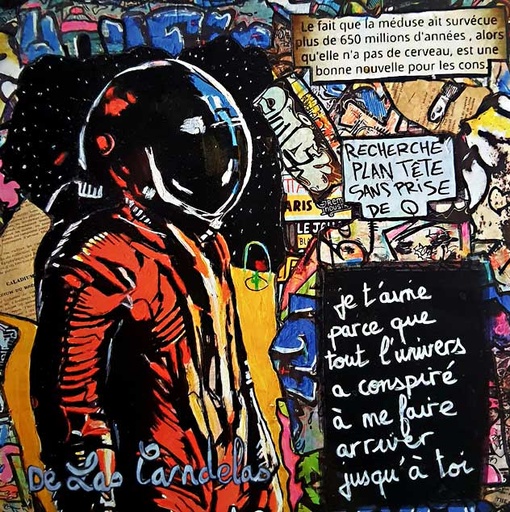 Le fait que la méduse ait survécue
plus de 650 millions d'années , alors
qu'elle n'a pas de cerveau, est une
bonne nouvelle pour les cons.
RECHERCHE
PLAN TÊTE
SANS PRISE
DE Q
ARIS
LE JOU
je t'aime
parce que
tout l'univers
a conspiré
à me faire
arriver
jusqu'à toi
De Las Candelas